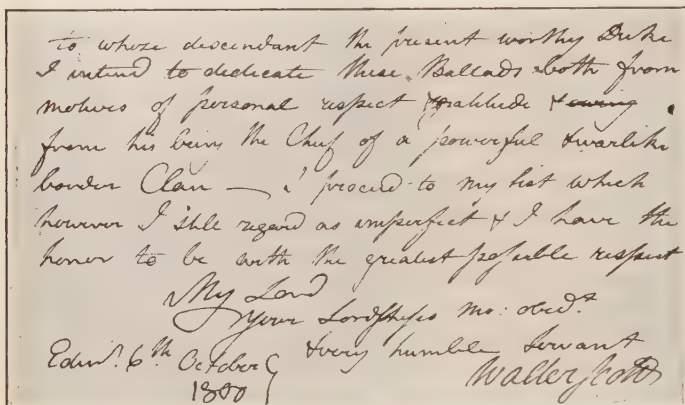 to whose descendant the present worthy Duke
I intend to dedicate these Ballads both from
motives of personal respect & gratitude & owing
from his being the Chief of a powerful & warlike
border Clan — I proceed to my list which
however I still regard as imperfect & I have the
honor to be with the greatest possible respect
My Lord
Your Lordships mo: obedt
& very humble Servant
Edinr. 6th October
1800
Walter Scott